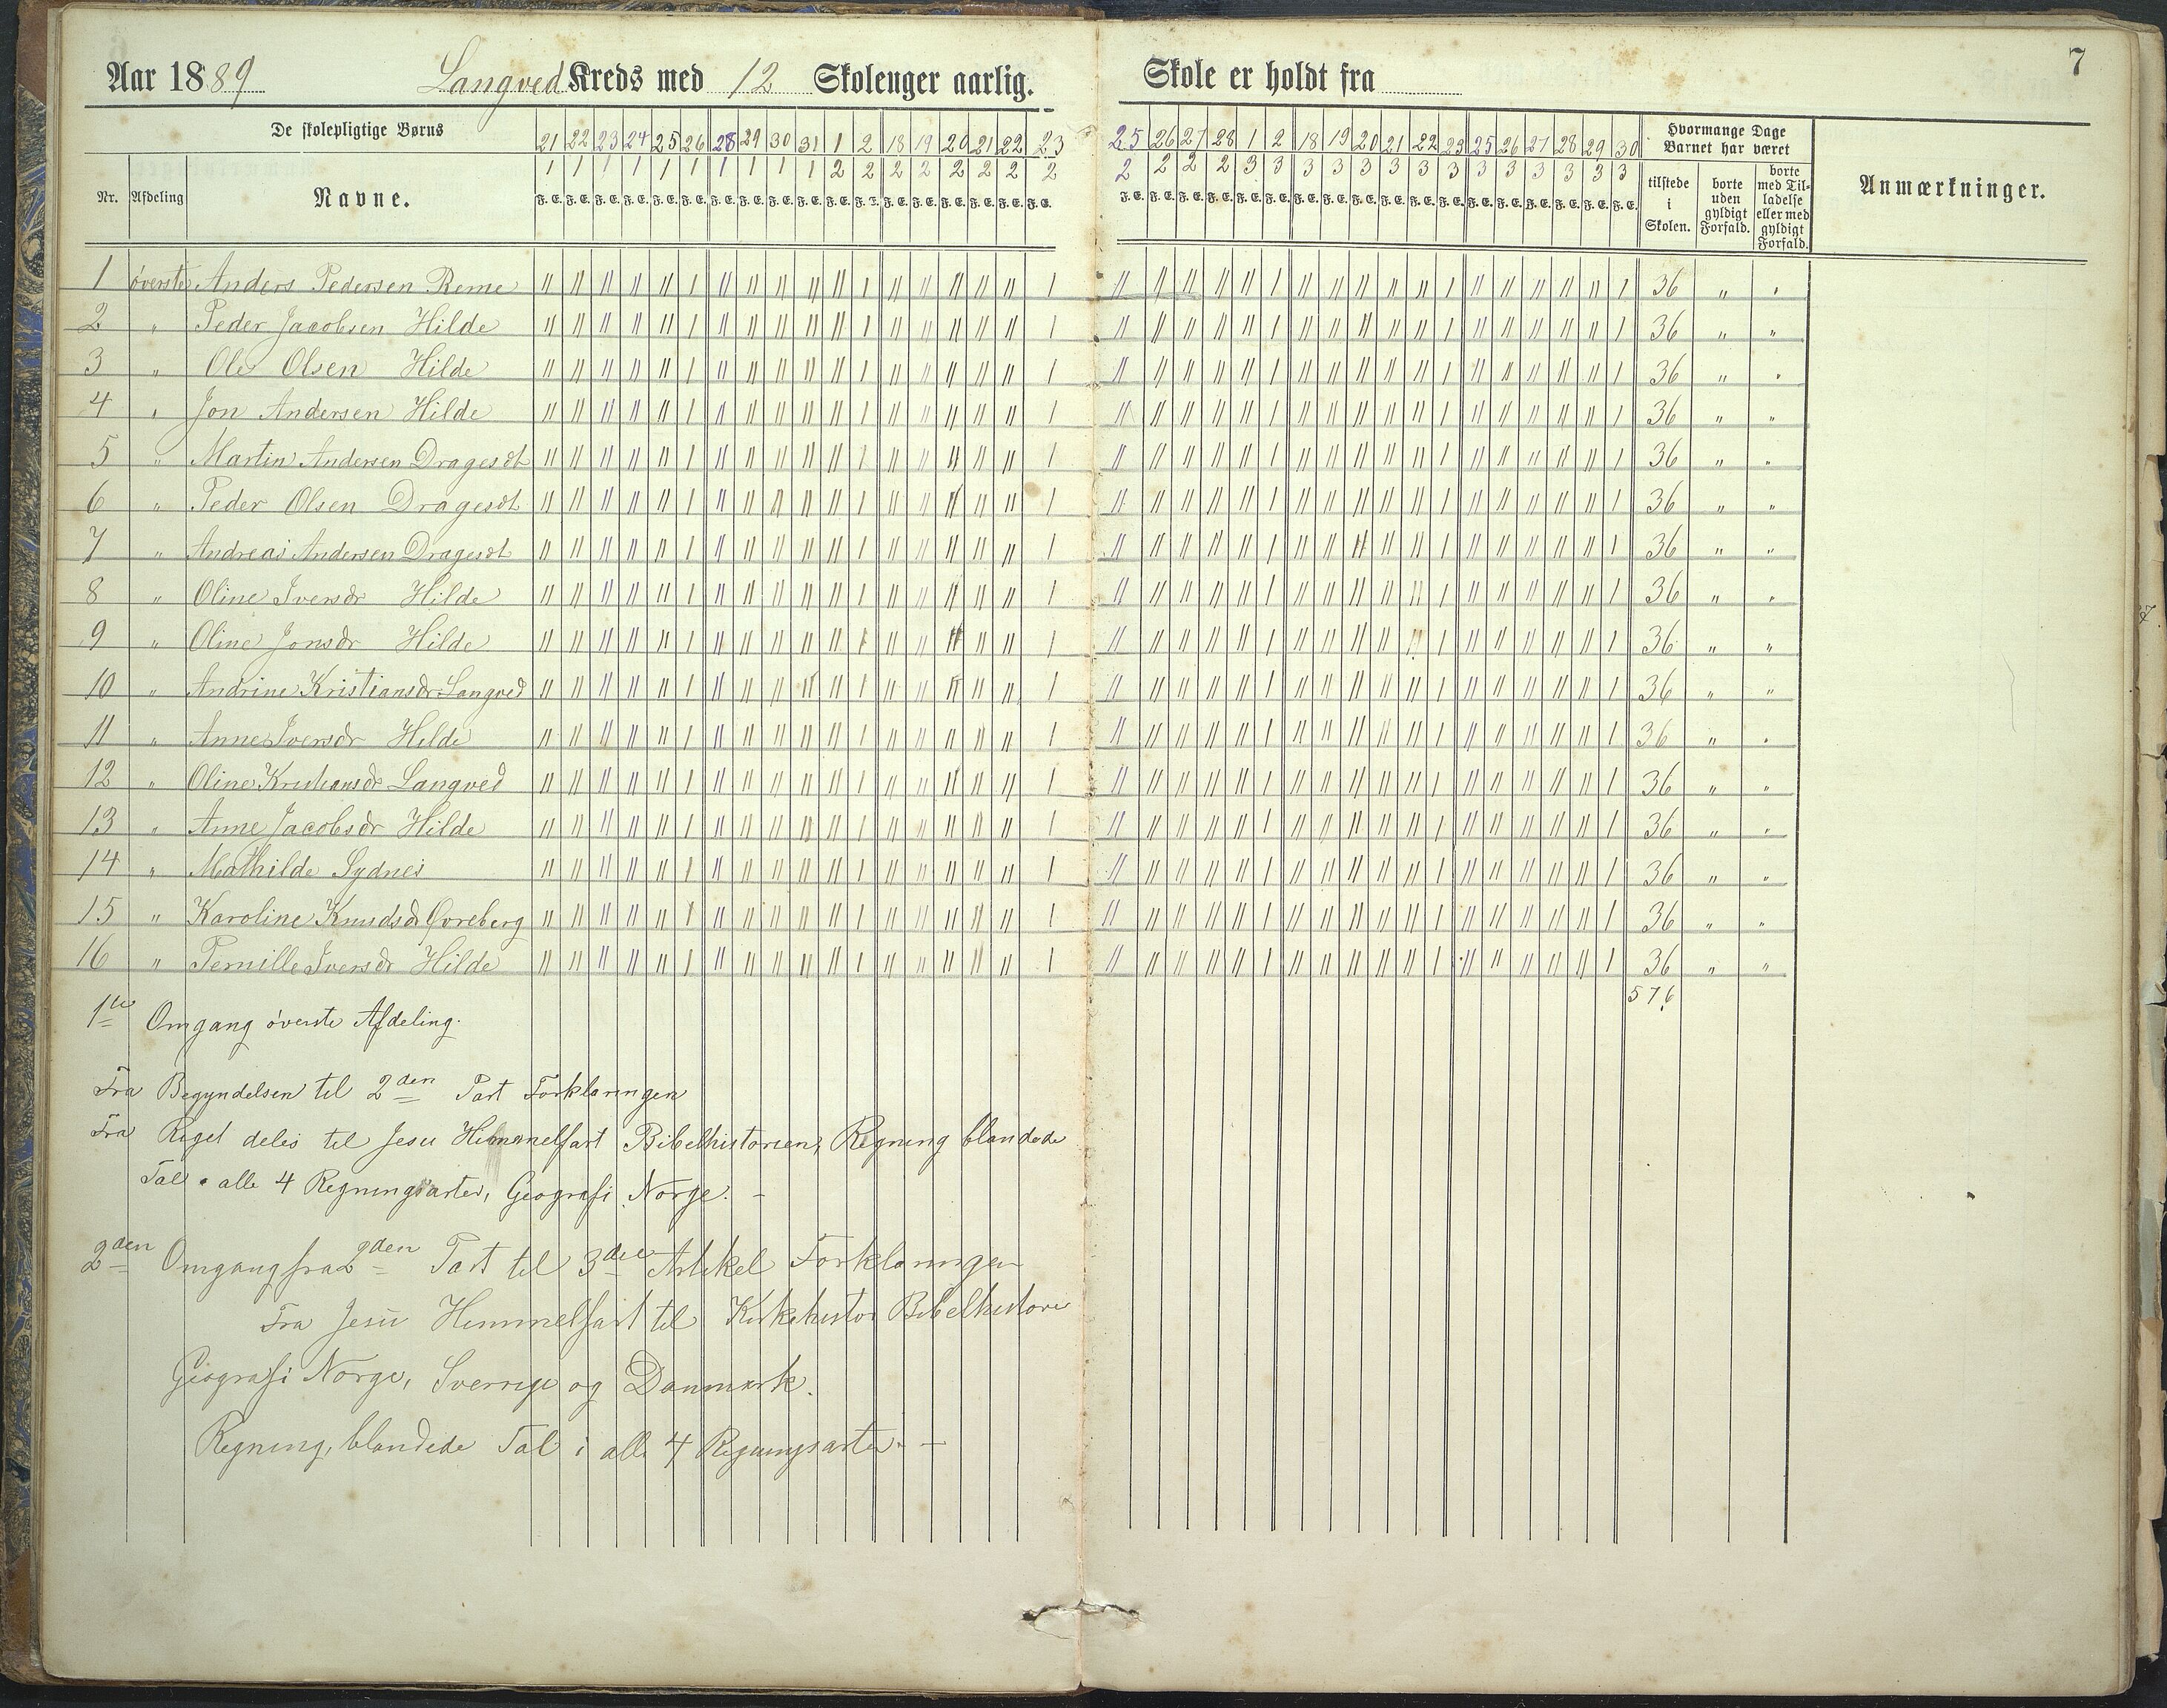 7
Aar 1889 Langved Kreds med 12 Skoleuger aarlig. Skole er holdt fra
De skolepligtige Børns
21 22 23 24 25 26 28 29 30 31 1 2 18 19 20 21 22 23 25 26 27 28 1 2 18 19 20 21 22 23 25 26 27 28 29 30
1 1 1 1 1 1 1 1 1 1 2 2 2 2 2 2 2 2 2 2 2 2 3 3 3 3 3 3 3 3 3 3 3 3 3 3
Hvormange Dage Barnet har været
Nr. Afdeling Navne. F. E. F. E. F. E. F. E. F. E. F. E. F. E. F. E. F. E. F. E. F. E. F. E. F. E. F. E. F. E. F. E. F. E. F. E. F. E. F. E. F. E. F. E. F. E. F. E. F. E. F. E. F. E. F. E. F. E. F. E. F. E. F. E. F. E. F. E. F. E. F. E.
tilstede i Skolen. borte uden gyldigt Forfald. borte med Tilladelse eller med gyldigt Forfald. Anmærkninger.
1 øverste Anders Pedersen Reme 36 " "
2 " Peder Jacobsen Hilde 36 " "
3 " Ole Olsen Hilde 36 " "
4 " Jon Andersen Hilde 36 " "
5 " Martin Andersen Dragesdt 36 " "
6 " Peder Olsen Dragesdt 36 " "
7 " Andreas Andersen Dragesdt 36 " "
8 " Oline Iversdr Hilde 36 " "
9 " Oline Jonsdr Hilde 36 " "
10 " Andrine Kristiansdr Langved 36 " "
11 " Anne Iversdr Hilde 36 " "
12 " Oline Kristiansdr Langved 36 " "
13 " Anne Jacobsdr Hilde 36 " "
14 " Mathilde Sydnes 36 " "
15 " Karoline Knudsdr Goreberg 36 " "
16 " Pernille Iversdr Hilde 36 " "
576
1ste Omgang øverste Afdeling.
Fra Begyndelsen til 2den Part Forklaringen
Fra Riget deles til Jesu Himmelfart Bibelhistorien, Regning blandede
Tal i alle 4 Regningsarter, Geografi Norge. –
2den Omgang fra 2den Part til 3die Artikel Forklaringen
Fra Jesu Himmelfart til Kirkehistor Bibelhistorie
Geografi Norge, Sverrige og Danmark.
Regning, blandede Tal i alle 4 Regningsarter. –